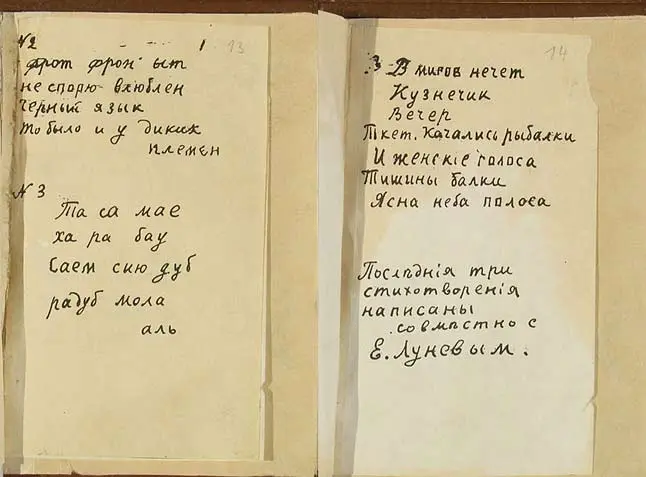 №2
фрот фрон ыт
не спорю влюблен
черный язык
то было и у диких
племен
№ 3
Та са мае
ха ра бау
Саем сию дуб
радуб мола
аль
13
3 В миров нечет
Кузнечик
Вечер
Ткет. Качались рыбалки
И женскіе голоса
Тишины балки
Ясна неба полоса
Послѣднія три
стихотворенія
написаны
совмѣстно с
Е. Луневым.
14